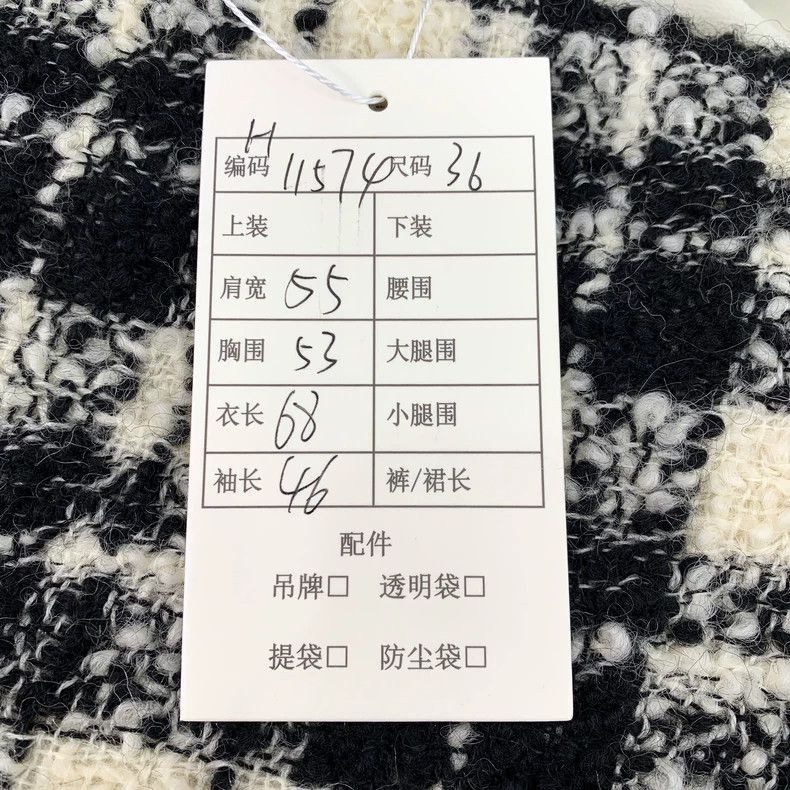 H
编码 11574 尺码 36
上装 下装
肩宽 55 腰围
胸围 53 大腿围
衣长 68 小腿围
袖长 46 裤/裙长
配件
吊牌□ 透明袋□
提袋□ 防尘袋□